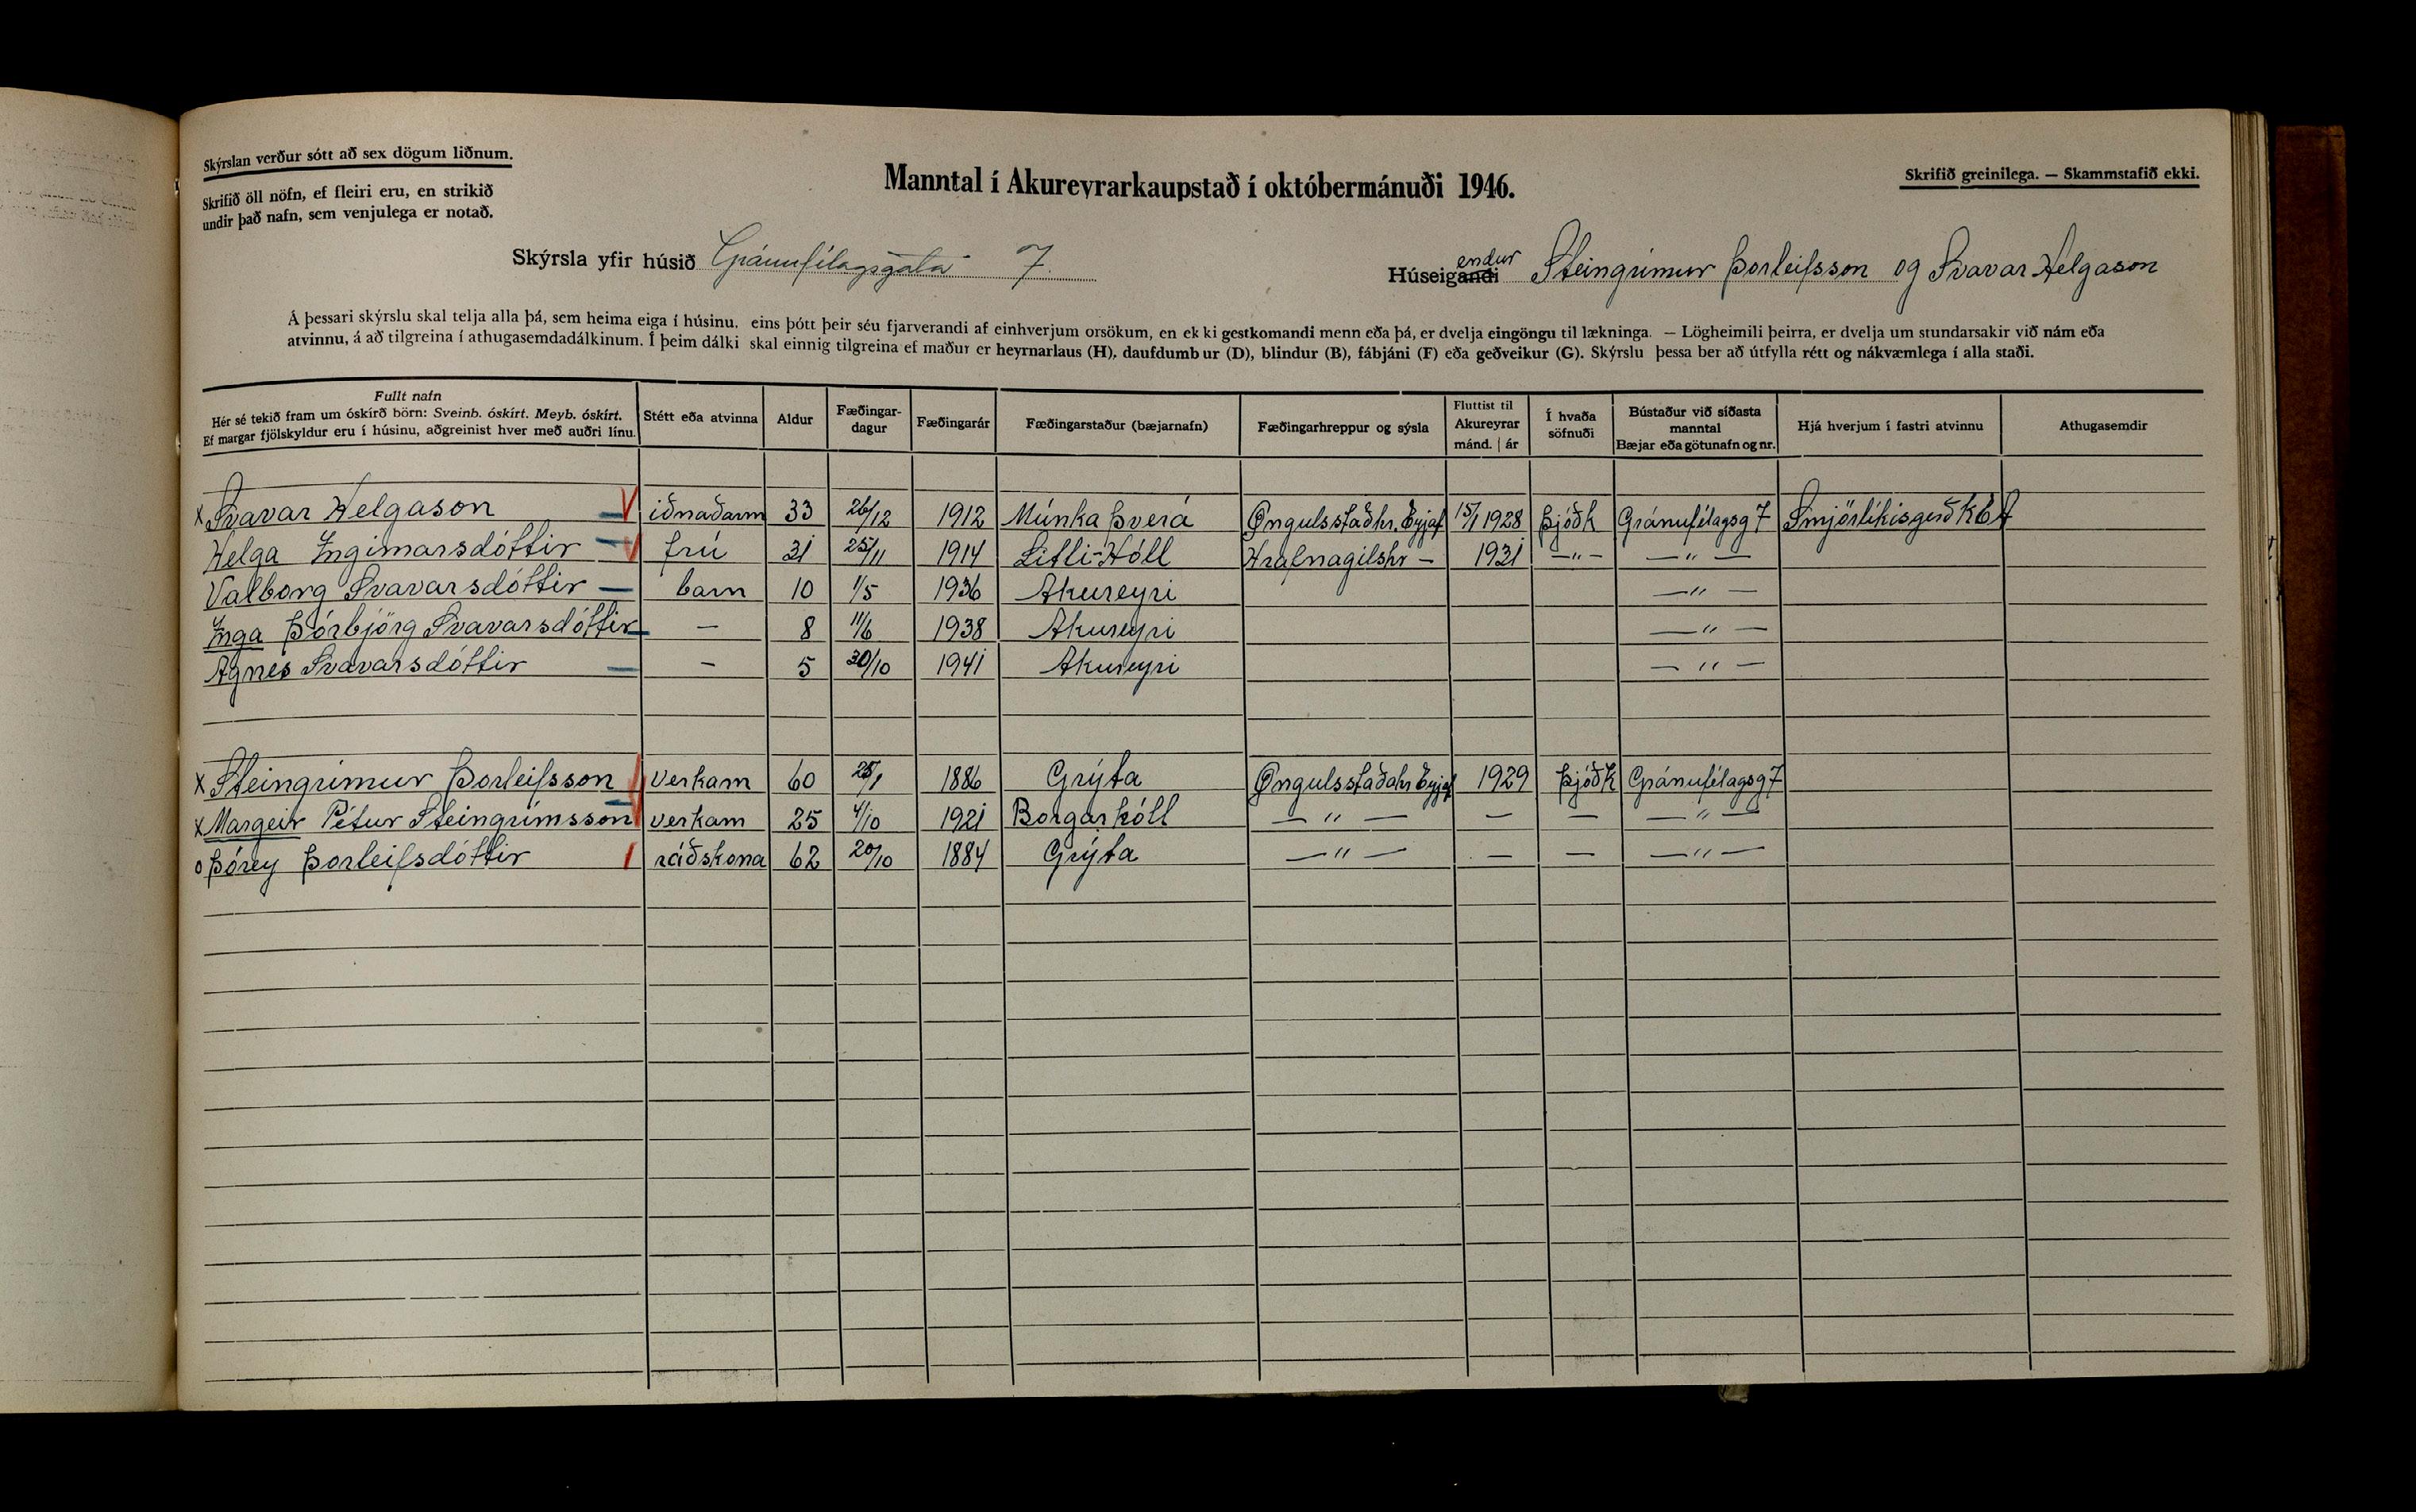 Skýrslan verður sótt að sex dögum liðnum.
Skrifið öll nöfn, ef fleiri eru, en strikið
undir það nafn, sem venjulega er notað.
Manntal í Akureyrarkaupstað í októbermánuði 1946.
Skrifið greinilega. — Skammstafið ekki.
Skýrsla yfir húsið Gránufélagsgata 7.
Húseigandi endur Steingrímur Þorleifsson og Svavar Helgason
Á þessari skýrslu skal telja alla þá, sem heima eiga í húsinu, eins þótt þeir séu fjarverandi af einhverjum orsökum, en ekki gestkomandi menn eða þá, er dvelja eingöngu til lækninga. — Lögheimili þeirra, er dvelja um stundarsakir við nám eða
atvinnu, á að tilgreina í athugasemdadálkinum. Í þeim dálki skal einnig tilgreina ef maður er heyrnarlaus (H), daufdumbur (D), blindur (B), fábjáni (F) eða geðveikur (G). Skýrslu þessa ber að útfylla rétt og nákvæmlega í alla staði.
Fullt nafn
Hér sé tekið fram um óskírð börn: Sveinb. óskírt. Meyb. óskírt.
Ef margar fjölskyldur eru í húsinu, aðgreinist hver með auðri línu.
Stétt eða atvinna
Aldur
Fæðingar-
dagur
Fæðingarár
Fæðingarstaður (bæjarnafn)
Fæðingarhreppur og sýsla
Fluttist til
Akureyrar
mánd. | ár
Í hvaða
söfnuði
Bústaður við síðasta
manntal
Bæjar eða götunafn og nr.
Hjá hverjum í fastri atvinnu
Athugasemdir
x Svavar Helgason — V iðnaðarm 33 26/12 1912 Múnkaþverá Öngulsstaðhr. Eyjaf 15/1 1928 Þjóðk Gránufélagsg 7 Smjörlíkisgerð KEA
Helga Ingimarsdóttir — V frú 31 25/11 1914 Litli-Hóll Hrafnagilshr — 1931 —"— —"—
Valborg Svavarsdóttir — barn 10 1/5 1936 Akureyri —"—
Inga Þórbjörg Svavarsdóttir — — 8 11/6 1938 Akureyri —"—
Agnes Svavarsdóttir — — 5 30/10 1941 Akureyri —"—
x Steingrímur Þorleifsson verkam 60 28/1 1886 Grýta Öngulsstaðahr Eyjaf 1929 Þjóðk Gránufélagsg 7
x Margeir Pétur Steingrímsson verkam 25 4/10 1921 Borgarhóll —"— — — —"—
o Þórey Þorleifsdóttir ráðskona 62 20/10 1884 Grýta —"— — — —"—